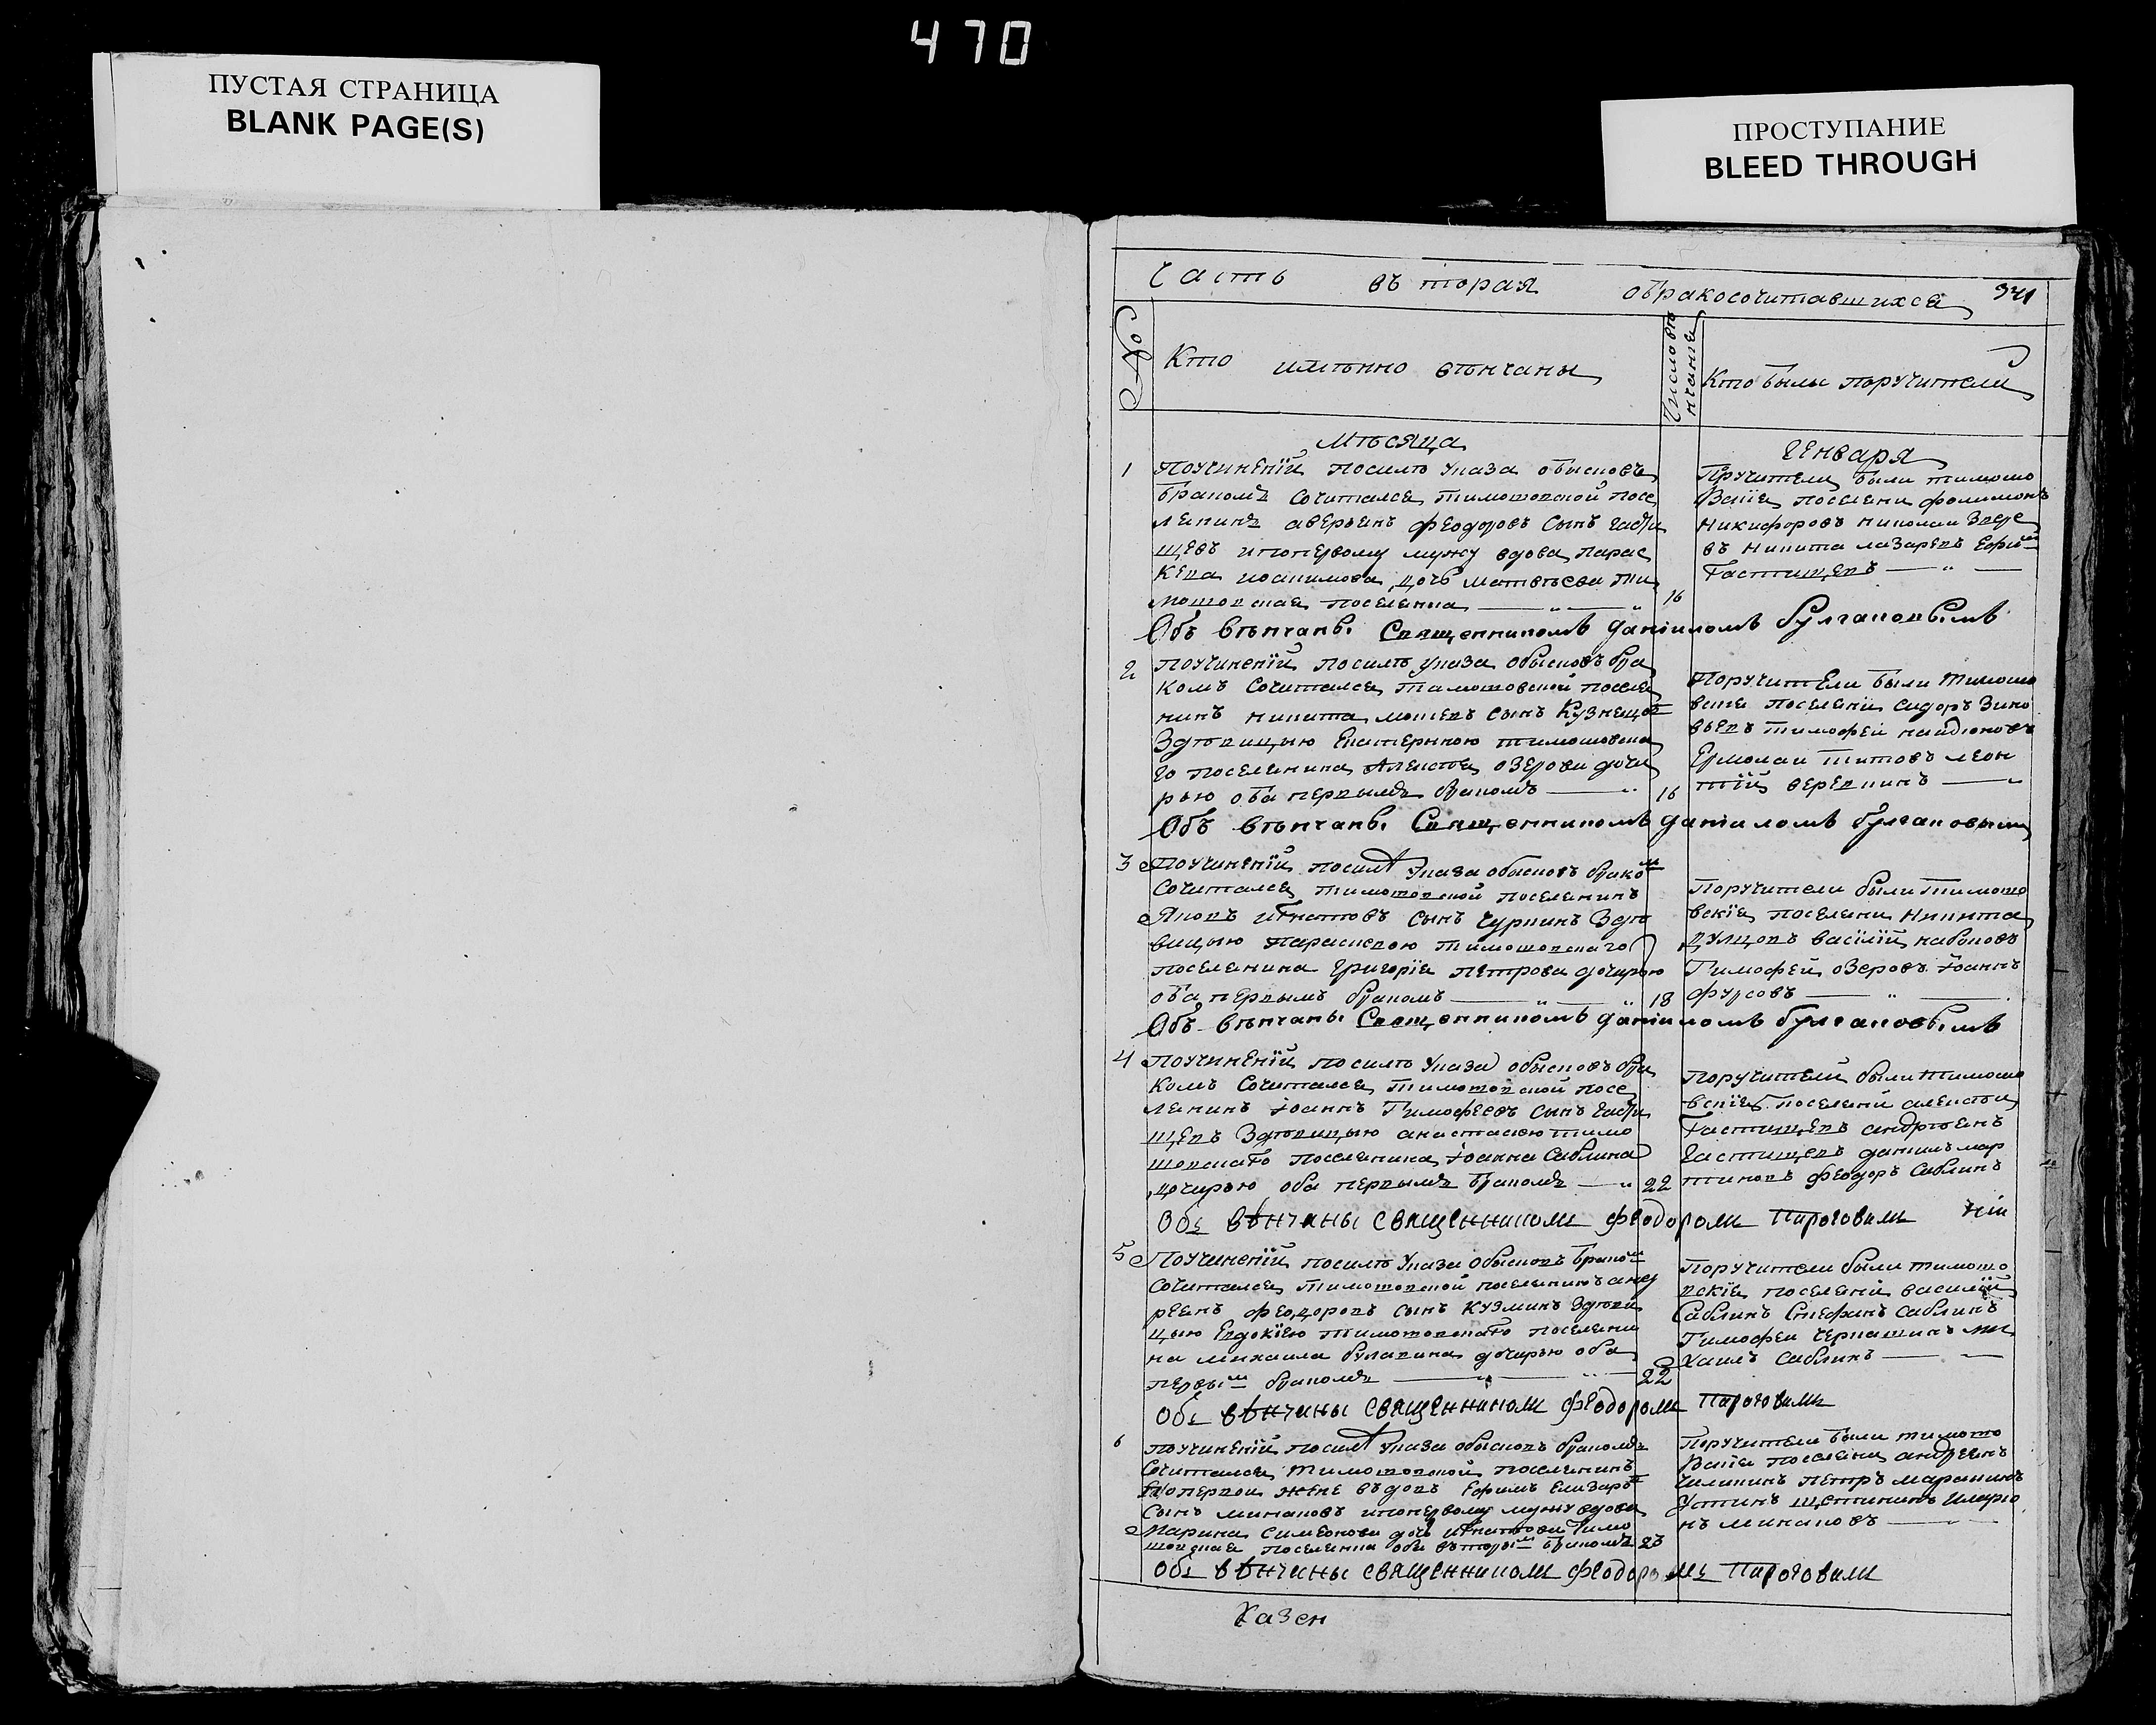 470
ПУСТАЯ СТРАНИЦА
BLANK PAGE(S)
ПРОСТУПАНИЕ
BLEED THROUGH
Часть въторая обракосочитавшихся 341
№ Кто имѣнно вѣнчаны Число вѣнчания Кто были поручители
Мѣсяца Генваря
1
Поучинений посилѣ указа обысковъ
бракомъ сочитался тимошовской посе
лянинъ аверьянъ феодоровъ сынъ
щевъ ипопервому мужу вдова парас
кева иоакимова дочь матвѣева ти
мошовская поселянка 16
Поручители были тимошо
вские поселяни филимонъ
Никифоровъ николаи
въ никита лазаревъ ефим
Гастищевъ
Объ вѣнчаны Священникомъ даніиломъ булгаковымъ
2
поучинений посилѣ указа обысковъ бра
комъ сочитался тимошовской поселя
нинъ никита мошевъ сынъ Кузнецов
Здѣвицью Екатериною тимошовска
го поселянина Алексѣя озерова доче
рью оба первымъ бракомъ 16
Поручители были тимошо
вские поселяни сидоръ зино
вьевъ тимофей найдюновъ
Ермолаи титовъ леон
тій веревкинъ
Объ вѣнчаны Священникомъ даніиломъ булгаковымъ
3
Поучинений посилѣ указа обысковъ бракомъ
сочитался тимошовской поселянинъ
Яковъ игнатовъ сынъ чуркинъ Здѣ
вицью параскевою тимошовскаго
поселянина григорія петрова дочерью
оба первымъ бракомъ 18
Поручители были тимошо
вскія поселяни никита
василій набоковъ
Тимофей озеровъ Іоаннъ
фурсовъ
Объ вѣнчаны Священникомъ даніиломъ булгаковымъ
4
поучинений посилѣ указа обысковъ бра
комъ сочитался тимошовской посе
лянинъ Іоаннъ Тимофеевъ сынъ
щевъ Здѣвицью анастасією тимо
шовскаго поселянина Іоанна Саблина
дочерью оба первымъ бракомъ 22
поручители были тимошо
вскіе поселяни алексѣи
Гастищевъ андрѣянъ
Гастищевъ данилъ мар
тиновъ феодоръ Саблинъ
Обе вѣнчаны священником феодором Пироговим
5
Поучинений посилѣ указа обысковъ браком
сочитался тимошовской поселянинъ анд
реянъ феодоровъ сынъ кузминъ здѣви
цью Евдокіею тимошовскаго поселяни
на михаила булавина дочерью оба
первым бракомъ 22
поручители были тимошо
вскія поселяни василій
Саблинъ Стефанъ Саблинъ
Тимофеи чернашинъ ми
хаилъ Саблинъ
Обе вѣнчаны священником феодором Пироговим
6
поучинений посилѣ указа обысковъ бракомъ
сочитался тимошовской поселянинъ
попервои жене въдовъ Ефимъ Елизаров
сынъ минаковъ ипопервому мужу вдова
Марина Симеонова дочь игнатова тимо
шовская поселянка оба въторым бракомъ 23
Поручители были тимошо
вскіе поселяни андреянъ
чиликинъ петръ маракинъ
Устинъ щетининъ иларіо
нъ минаковъ
Обе вѣнчаны священником феодором Пироговим
Казен